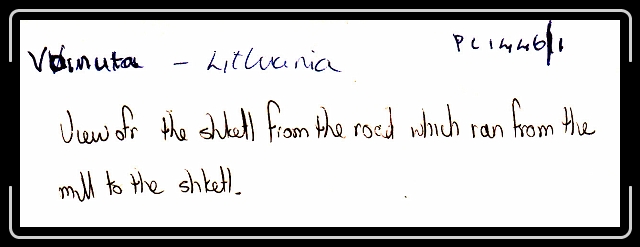 Vainuta - Lithuania
PC 1446/1
View of the shtetl from the road which ran from the
mill to the shtetl.